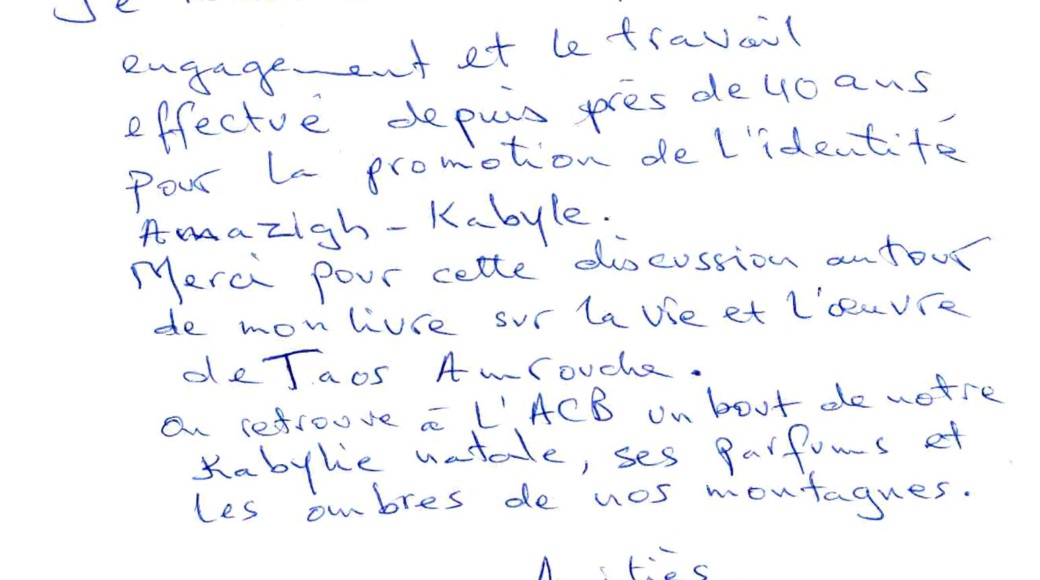 Je
engagement et le travail
effectué depuis près de 40 ans
pour la promotion de l'identité
Amazigh - Kabyle.
Merci pour cette discussion autour
de mon livre sur la vie et l'œuvre
de Taos Amrouche.
On retrouve à l'ACB un bout de notre
Kabylie natale, ses parfums et
les ombres de nos montagnes.